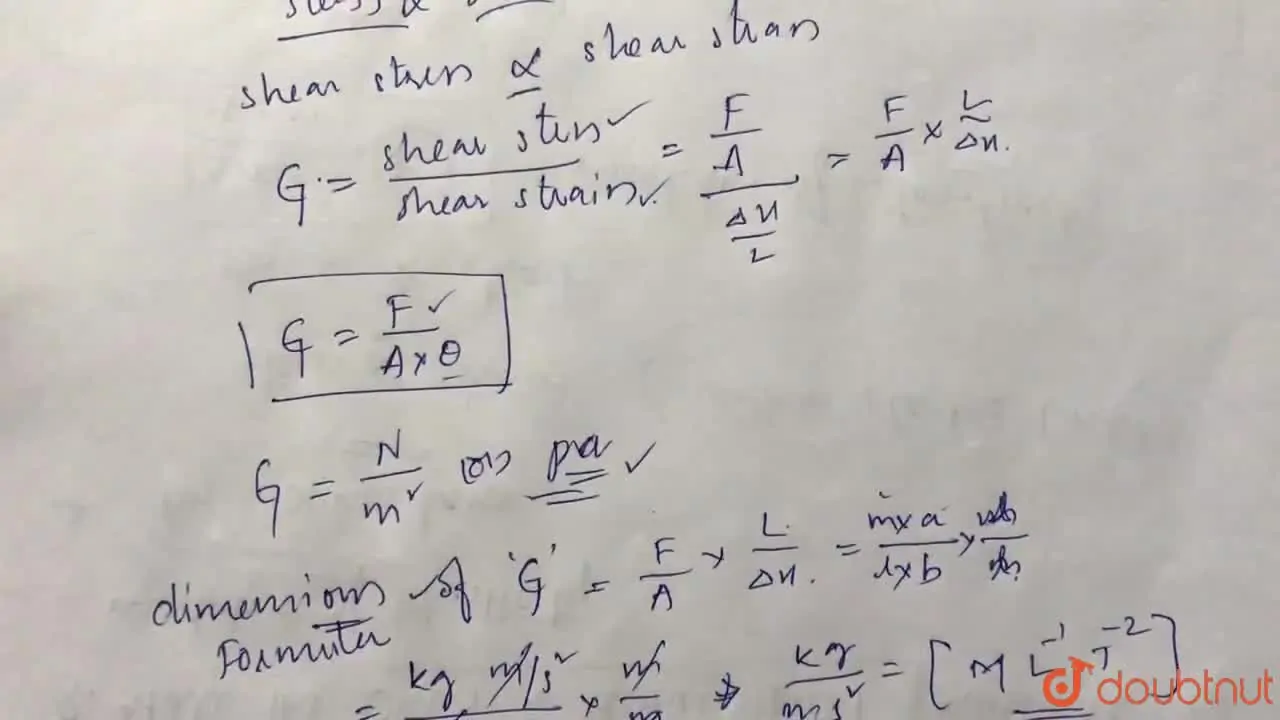 stress α
shear stress α shear strain
G = shear stress ✓ / shear strain ✓ = F/A / Δx/L = F/A × L/Δx.
G = F ✓ / A × θ
G = N/m² (or) pa ✓
dimensions of 'G' = F/A × L/Δx. = m×a / l×b ×
Formula
= kg m/s² × m/m ⇒ kg/ms² = [M L⁻¹ T⁻²]
doubtnut